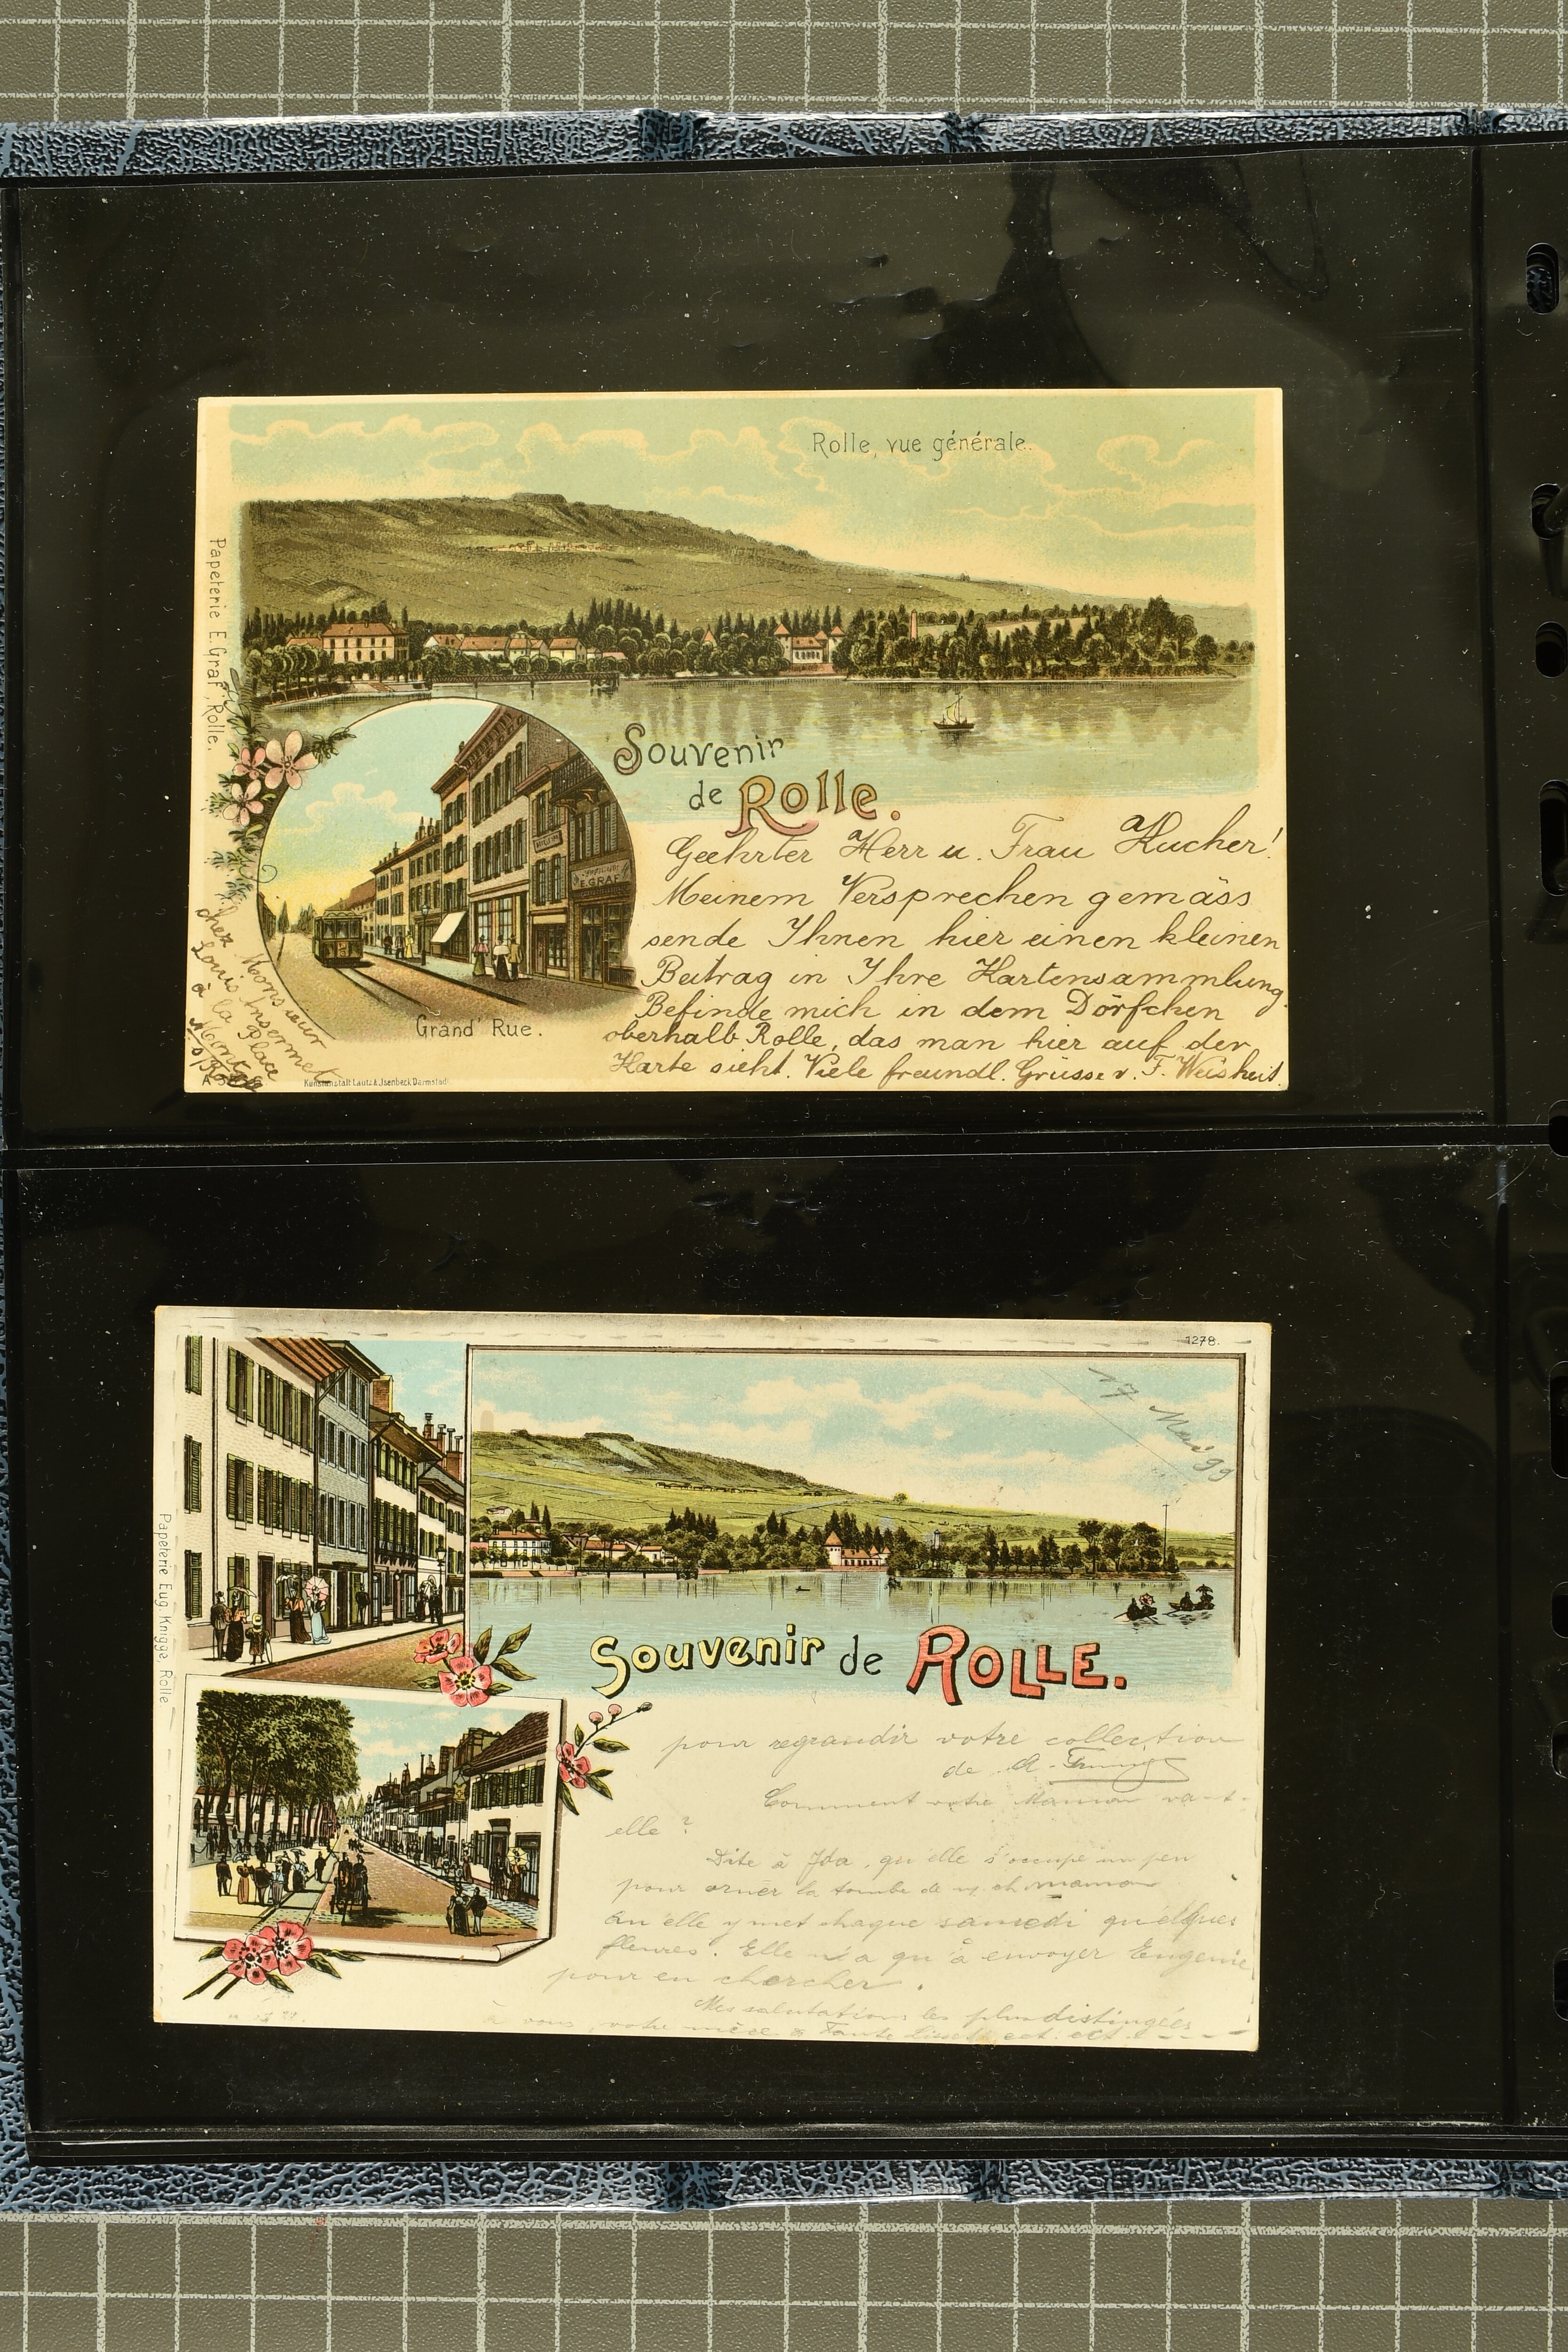 Rolle, vue générale.
Papeterie E. Graf, Rolle.
Souvenir
de Rolle.
E. GRAF
Geehrter Herr u. Frau Kucher!
Meinem Versprechen gemäss
sende Ihnen hier einen kleinen
Beitrag in Ihre Kartensammlung.
Befinde mich in dem Dörfchen
oberhalb Rolle, das man hier auf der
Karte sieht. Viele freundl. Grüsse v. F. Weisheit.
Grand' Rue.
chez Monsieur
Louis Insermet
à la Place
Kunstanstalt Lautz & Jsenbeck Darmstadt
1278.
17 Mai 99
Papeterie Eug. Knigge, Rolle.
Souvenir de ROLLE.
pour regrandir votre collection
de A.
Comment votre Maman va-t-
elle ?
Dite à Ida, qu'elle s'occupe un peu
pour orner la tombe de m. ch. maman
Qu'elle y met chaque samedi quelques
fleures. Elle n'a qu'à envoyer Eugenie
pour en chercher.
Mes salutations les plus distingées
à vous, votre mère & Tante ect. ect.